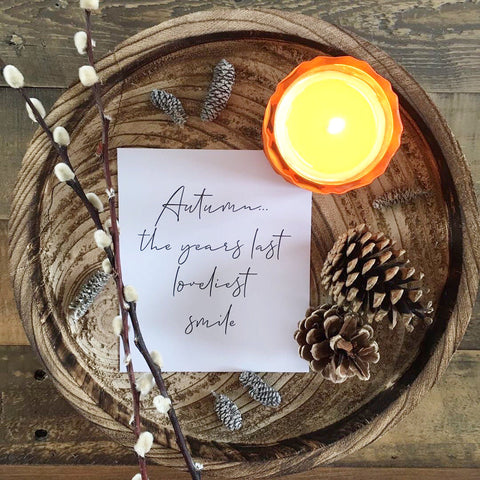 Autumn...
the years last
loveliest
smile